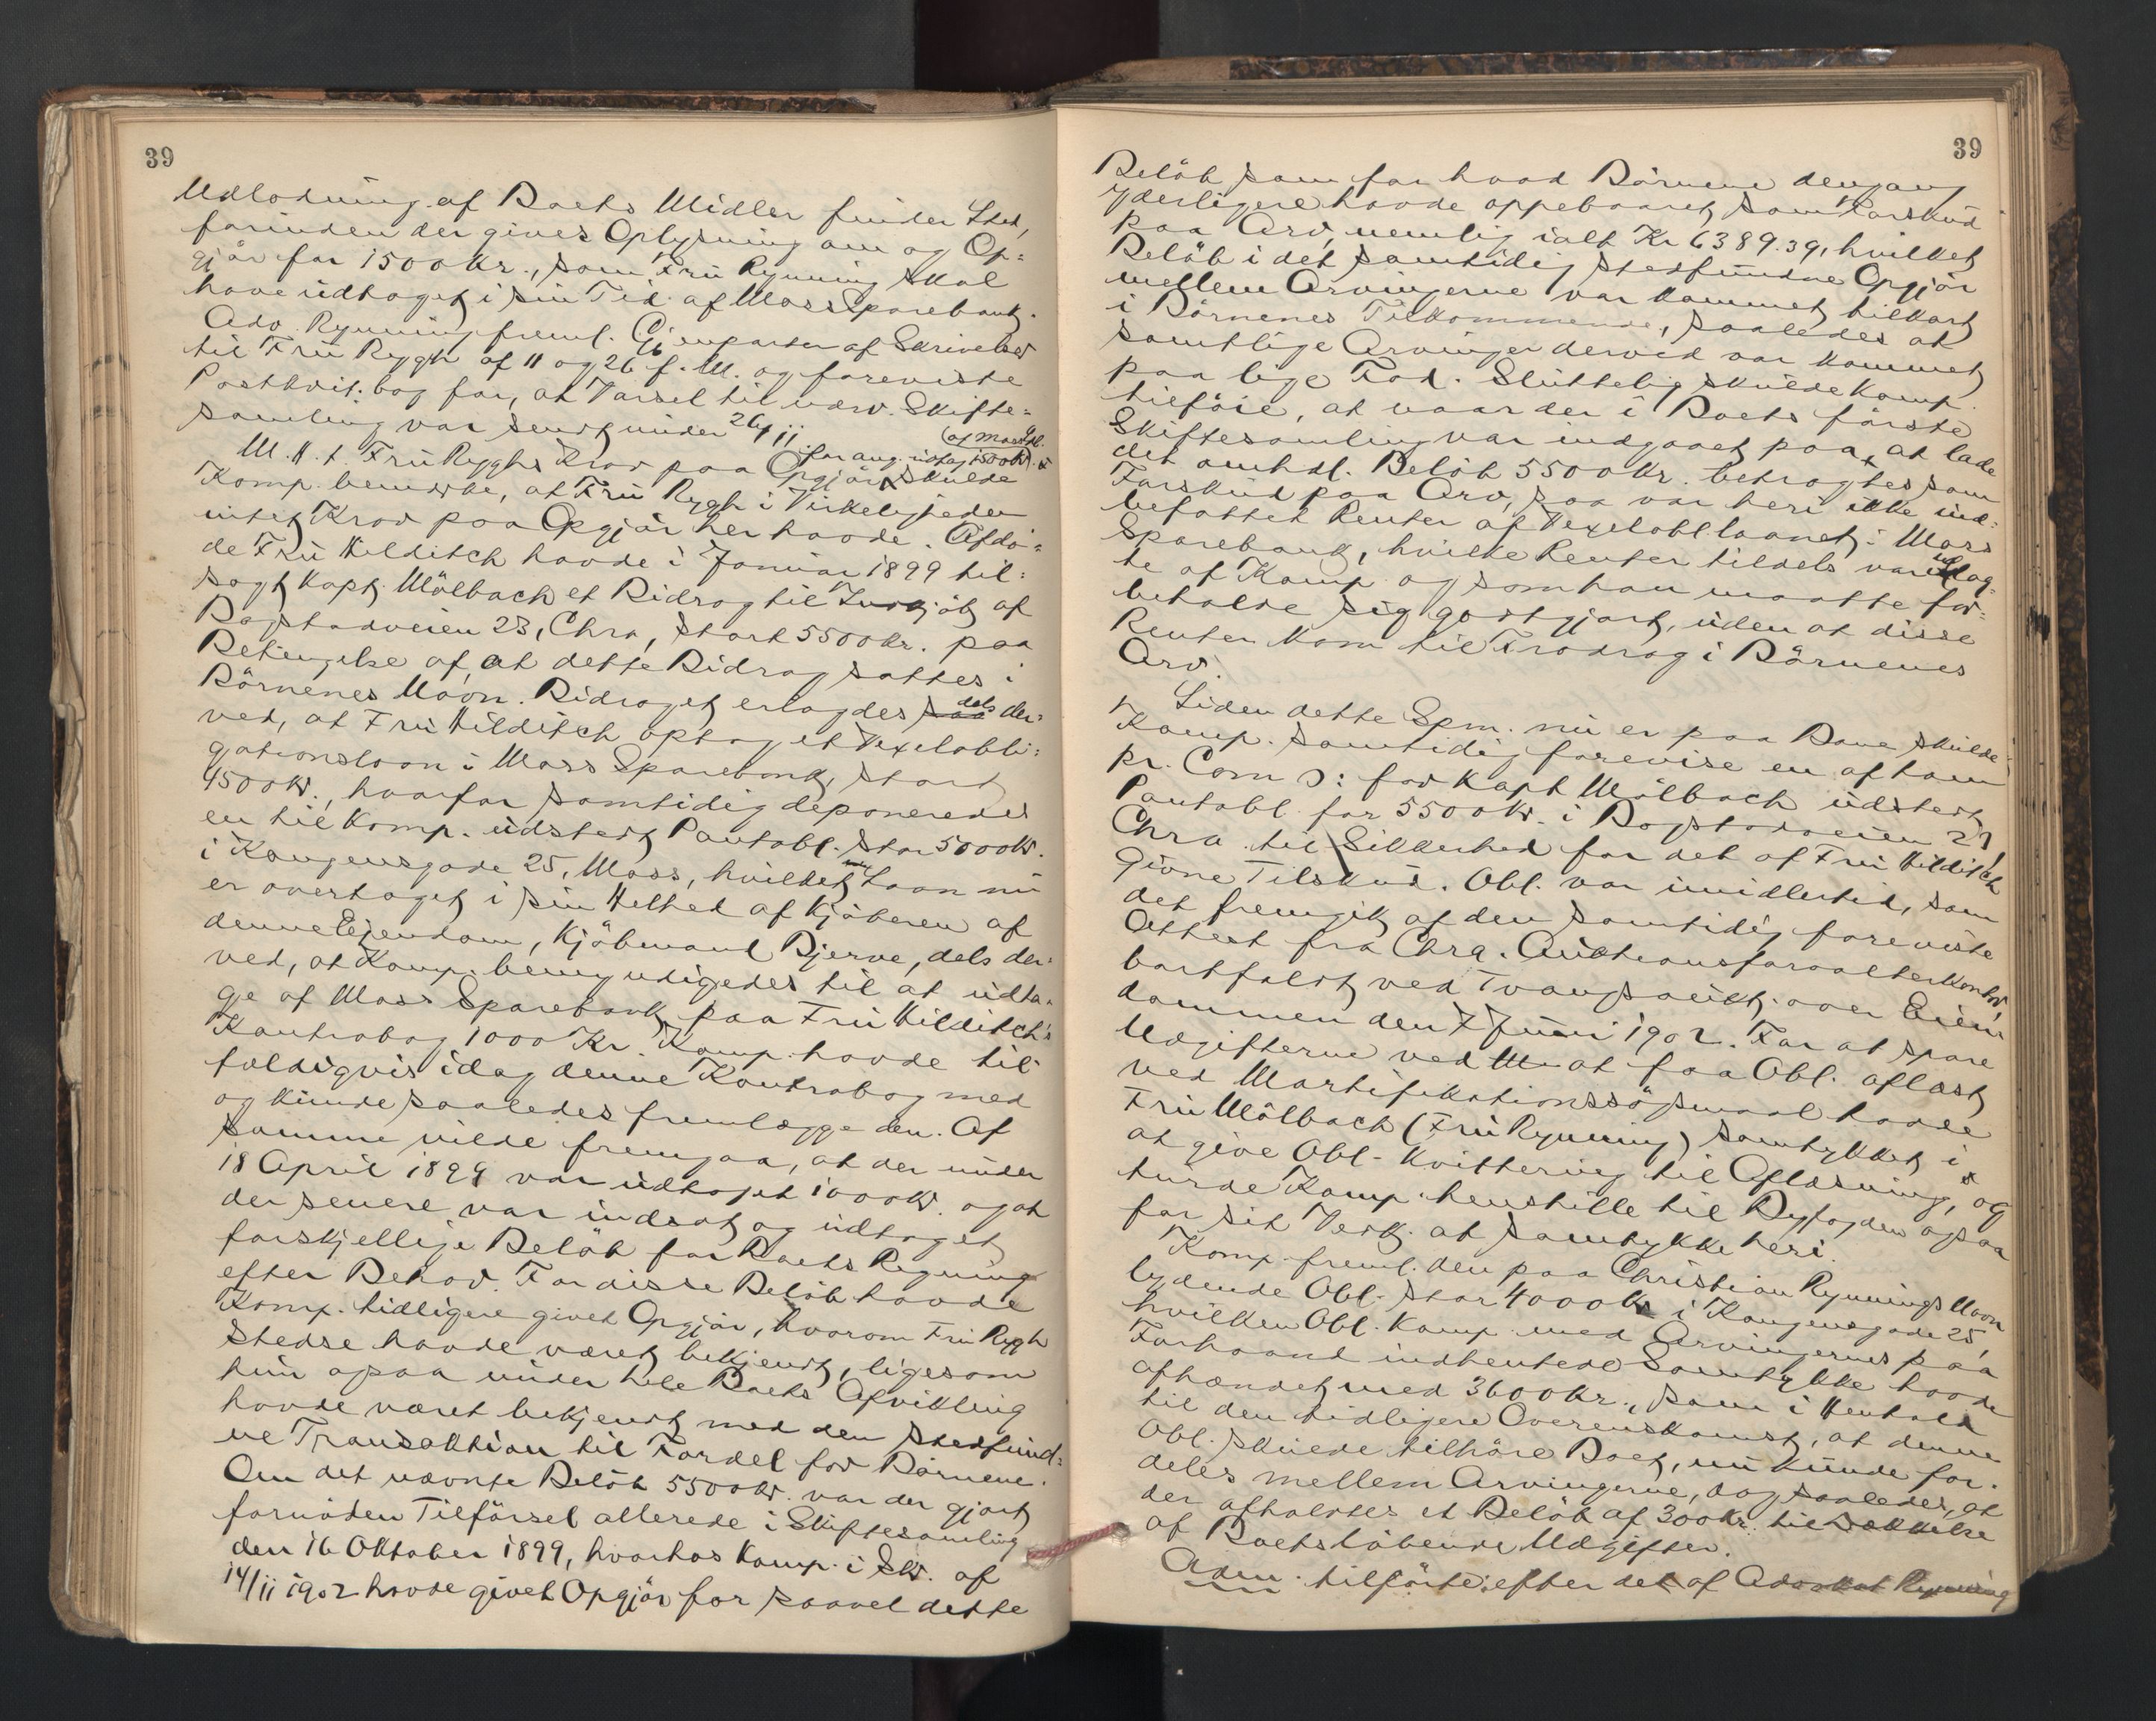 39
Udlodning af Boets Midler finder Sted,
forinden der gives Oplysning om og Op=
gjør for 1500 Kr., som Fru Rynning skal
have udtaget i sin Tid af Moss Sparebank.
Adv. Rynning freml. Gjenparter af Skrivelser
til Fru Rygh af 11 og 26 f. M. og foreviste
Postkvit. bog for, at Varsel til nærv. Skifte=
samling var sendt under 26/11.
(af Moss Spb.
M. H. t. Fru Ryghs Krav paa Opgjør for ang. udtag. 1500 Kr. skulde
Komp. bemærke, at Fru Rygh i Virkeligheden
intet Krav paa Opgjør her havde. Afdø=
de Fru Hilditch havde i Januar 1899 til=
sagt Kapt. Mölbach et Bidrag til Indkjöb af
Bogstadveien 23, Chra, stort 5500 Kr. paa
Betingelse af, at dette Bidrag sattes i
Börnenes Navn. Bidraget erlagdes dels der=
ved, at Fru Hilditch optog et Vexelobli=
gationslaan i Moss Sparebank, stort
4500 Kr., hvorfor samtidig deponeredes
en til Komp. udstedt Pantobl. stor 5000 Kr.
i Kongensgade 25, Moss, hvilket Laan nu
er overtaget i sin Helhed af Kjöberen af
denne Eiendom, Kjöbmand Bjerve, dels der=
ved, at Komp. bemyndigedes til at udta=
ge af Moss Sparebank paa Fru Hilditch's
Kontrabog 1000 Kr. Komp. havde til=
fældigvis idag denne Kontrabog med
og kunde saaledes fremlægge den. Af
samme vilde fremgaa, at der under
18 April 1899 var udtaget 1000 Kr. og at
der senere var indsat og udtaget
forskjellige Belöb for Boets Regning
efter Behov. For disse Belöb havde
Komp. tidligere givet Opgjör, hvorom Fru Rygh
stedse havde været bekjendt, ligesom
hun ogsaa under hele Boets Afvikling
havde været bekjendt med den stedfund=
ne Transaktion til Fordel for Börnene.
Om det nævnte Belöb 5500 Kr. var der gjort
fornöden Tilförsel allerede i Skiftesamling
den 16 Oktober 1899, hvorhos Komp. i Skr. af
14/11 1902 havde givet Opgjör for saavel dette
39
Belöb som for hvad Börnene dengang
yderligere havde oppebaaret som Forskud
paa Arv, nemlig ialt Kr 6389.39, hvilket
Belöb i det samtidig stedfundne Opgjör
mellem Arvingerne var kommet tilkort
i Börnenes Tilkommende, saaledes at
samtlige Arvinger derved var kommet
paa lige Fod. Sluttelig skulde Komp.
tilföie, at naar der i Boets förste
Skiftesamling var indgaaet paa, at lade
det omhdl. Belöb 5500 Kr. betragtes som
Forskud paa Arv, saa var heri ikke ind=
befattet Renter af Vexelobl.laanet i Moss
Sparebank, hvilke Renter tildels var udlag=
te af Komp. og som han maatte for=
beholde sig godtgjort, uden at disse
Renter kom til Fradrag i Börnenes
Arv.
Siden dette Spm. nu er paa Bane skulde
Komp. samtidig forevise en af ham
pr. Com ɔ: for Kapt Mölbach udstedt
Pantobl. for 5500 Kr. i Bogstadveien 23,
Chra til Sikkerhed for det af Fru Hilditch
givne Tilskud. Obl. var imidlertid, som
det fremgik af den samtidig foreviste
Attest fra Chra. Auktionsforvalterkontor
bortfaldt ved Tvangsaukt. over Eien=
dommen den 7 Juni 1902. For at spare
Udgifterne ved at faa Obl. aflæst
ved Mortifikationssögsmaal havde
Fru Mölbach (Fru Rynning) samtykket i
at give Obl. Kvittering til Aflæsning, og
turde Komp. henstille til Byfogden ogsaa
for sit Vedk. at samtykke heri.
Komp. freml. den paa Christian Rynnings Navn
lydende Obl. stor 4000 Kr i Kongensgade 25,
hvilken Obl. Komp. med Arvingernes paa
Forhaand indhentede Samtykke havde
afhændet med 3600 Kr., som i Henhold
til den tidligere Overenskomst, at denne
Obl. skulde tilhöre Boet, nu kunde for=
deles mellem Arvingerne, dog saaledes, at
der afholdtes et Belöb af 300 Kr. til Dækkelse
af Boets löbende Udgifter.
Adm. tilförte: efter det af Advokat Rynning